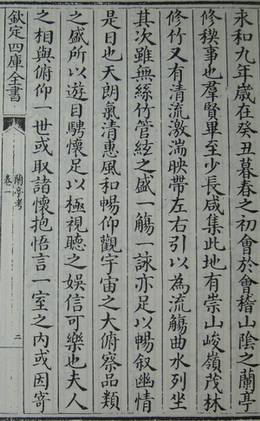 永和九年歳在癸丑暮春之初會於會稽山陰之蘭亭
修稧事也羣賢畢至少長咸集此地有崇山峻嶺茂林
修竹又有清流激湍映帶左右引以為流觴曲水列坐
其次雖無絲竹管絃之盛一觴一詠亦足以暢叙幽情
是日也天朗氣清惠風和暢仰觀宇宙之大俯察品類
之盛所以遊目騁懷足以極視聽之娛信可樂也夫人
之相與俯仰一世或取諸懷抱悟言一室之内或因寄
欽定四庫全書
蘭亭考
卷一
二